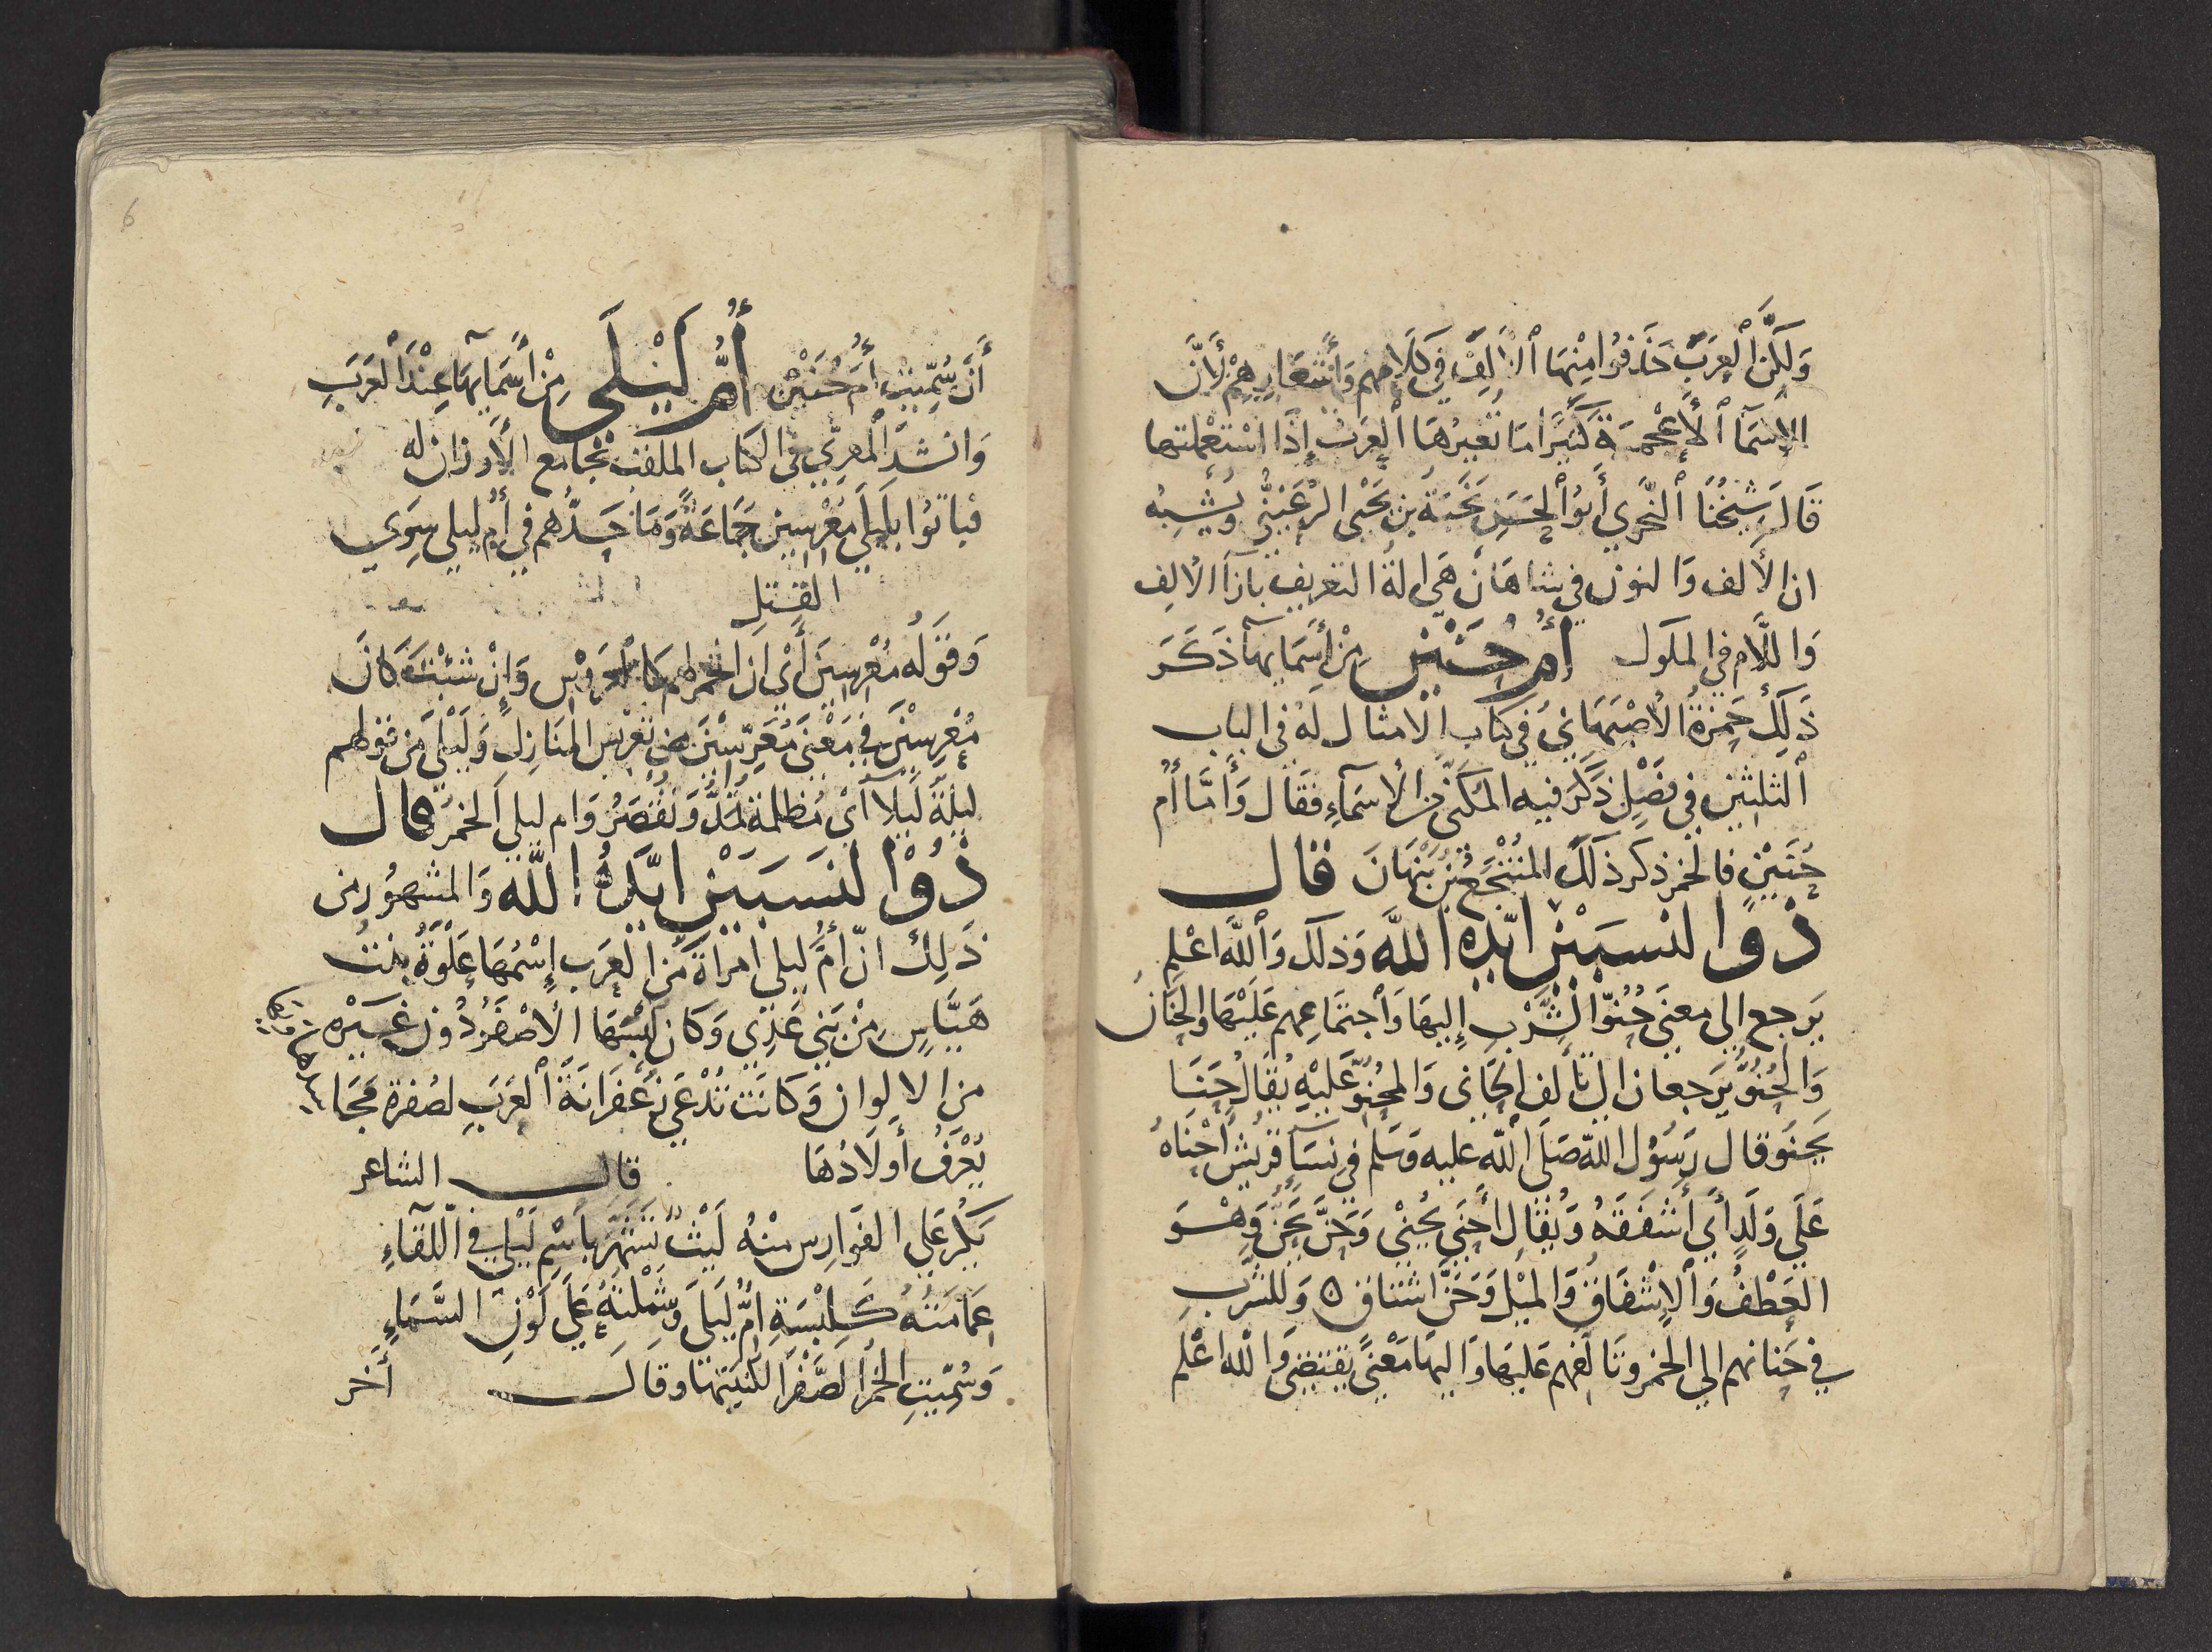 وَلَكِنَّ الْعَرَبَ حَذَفُوا مِنْهَا الْأَلِفَ فِي كَلَامِهِم وَأَشْعَارِهِمْ لِأَنَّ
الأسْمَآ ٱلْأَعْجَمِيَّةَ كَثِيرًا مَا تُغَيِّرُهَا ٱلْعَرَبُ إِذَا اسْتَعْمَلتها
قَالَ شَيْخُنَا ٱلنَّحْوِي أَبُو ٱلْحَسَن نَجَبَةُ بن يَحْيَى الرُّعَيْنِيُّ وَيُشْبِهُ
ان الألف وَالنون في شاهَان هَي الةُ التعريف بازآ الألف
وَاللَّام في المكول أُم حُنَيْن مِنْ أَسْمَايهآ ذَكَرَ
ذَلِكَ حَمزةُ الأصْبَهَانِيُّ في كتاب الأمثال لَهُ في الباب
ٱلثلثين في فَصْلٍ ذَكَرَ فيه المكَنَّى من الأسمَآءِ فقَال وَأَمَّا أُم
حُنَيْنٍ فالخمر ذكر ذلك المُنْتَجَعُ بْنُ نَبْهَانَ قال
ذُو النسبَيْن ايّده اللَّه وَذلك وَاللَّه اعْلم
يَرجع الى معنَى حُنُوِّ الشَّرْبِ إِليهَا وَاجتمَاعِهم عَلَيْهَا والحَنَانُ
وَالحُنُوُّ يَرجعان الى تألف الحَانى وَالمحْنُوِّ عَليْهِ يُقَالُ حَنَا
يَحْنُو قال رَسُول اللّه صَلى اللّه عليه وَسَلم في نسآءِ قُرَيْش أَحْنَاهُ
عَلَى وَلَدٍ أَي أَشفَقَهُ وَيُقَال أَحْنَى يُحْنِي وَحَنَّ يَحِنُّ وَهْوَ
العَطْفُ وَالإِشْفَاقُ وَالمَيْل وَحَنَّ اشتاق ه وَللشَّربِ
في حَنانهم الى الخمر وتَالفهم عَليهَا وَاليهَا مَعْنًى يقتضى وَاللّه اعْلم
أَنْ سُمِّيَتْ أُمَّ حُنَيْنٍ أُمُّ لَيْلَى مِنْ أَسْمَآيهَا عِنْدَ الْعَرَبِ
وَانشدَ المعرّي في الكتاب الملقب بجَامع الأوزان له
فباتوُا بليلَى مُعْرِسِينَ جَمَاعَةً وَمَا حَدُّهم في أُم ليلى سِوَى
القتل
وَقَوْلُه مُعْرِسِينَ أَيْ ان الخمر لهم كالعَرُوْسِ وَإِنْ شئْتَ كَانَ
مُعْرِسِيْنَ في مَعْنَى مُعَرِّسِيْنَ من تعْريس المنَازِل وَلَيْلَى مِن قولهم
ليلةٌ لَيْلَآ أَىْ مُظلمة تُمَدُّ وَتُقْصَرُ وَام ليلى الخمرُ قال
ذُوْ النسبَيْن ايَّدَهُ اللَّه وَالمشهُور من
ذَلِكَ انّ أُمَّ ليلى امرأة مِّن العَرَب إِسْمُهَا عَلْوَةُ بنت
هَيَّاسٍ مِنْ بَنِي عَدِي وَكان لبْسُهَا الأصْفَرُ دُون غَيْرِه
من الالوان وَكانَت تُدْعَى زَعْفَرَانَةَ العَرَبِ لصُفرة
يُعْرَفُ أَولادُهَا قال الشاعر
يَكُرُّ عَلى الفوَارس منْهُ لَيْثٌ تَشَهَّرَ باسْمِ لَيْلَى في اللّقَآءِ
عِمَامَتُهُ كَلِبْسَةِ أُمِّ لَيْلَى وَشَمْلَتُهُ عَلَى لَوْنِ السَّمَآءِ
وَسُمِّيَتِ الخمْرُ الصَّفْرَا لكنيَتهَا وقال أخر